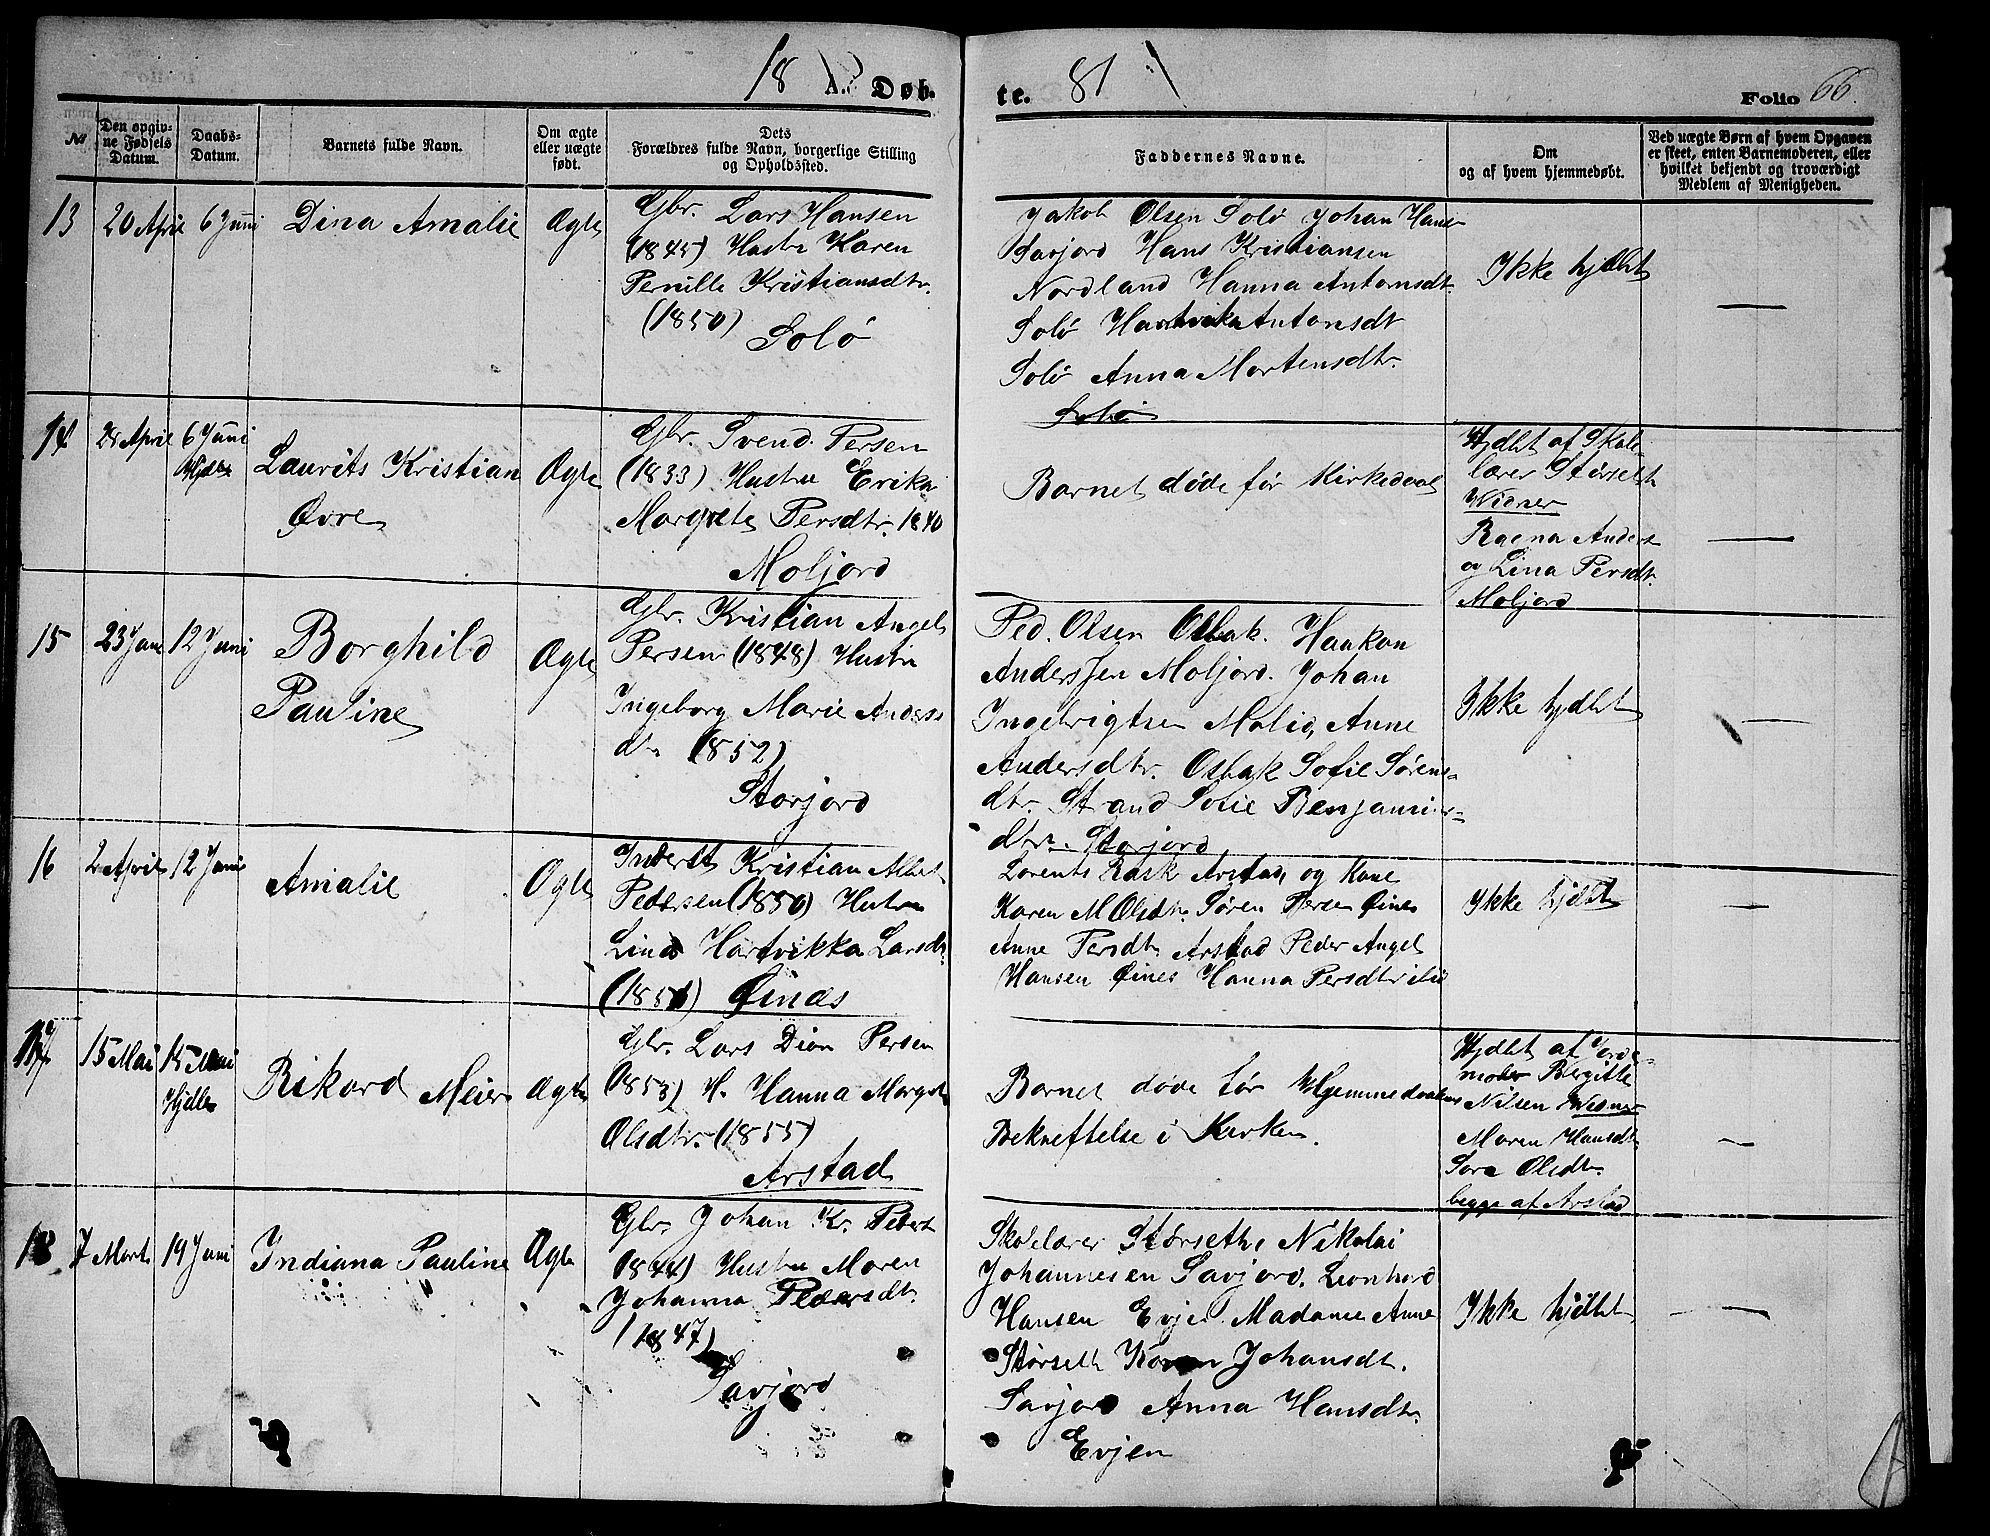 18 A. Døb-
te. 81
Folio 66.
No
Den opgiv-
ne Fødsels
Datum.
Daabs-
Datum.
Barnets fulde Navn.
Om ægte
eller uægte
født.
Dets
Forældres fulde Navn, borgerlige Stilling
og Opholdssted.
Faddernes Navne.
Om
og af hvem hjemmedøbt.
Ved uægte Børn af hvem Opgaven
er skeet, enten Barnemoderen, eller
hvilket bekjendt og troværdigt
Medlem af Menigheden.
13
20 April
6 Juni
Dina Amalie
Ægte
Gbr. Lars Hansen
(1845) Hustru Karen
Pernille Kristiansdtr.
(1850)
Solø
Jakob Olsen Solø Johan Hans
Savjord Hans Kristiansen
Nordland Hanna Antonsdt.
Solø Hartvika Antonsdt
Solø Anna Mortensdtr.
Solø
Ikke hjdbt
—
14
28 April
6 Juni
Hjdbt
Laurits Kristian
Øvre
Ægte
Gbr. Svend Persen
(1833) Hustru Erika
Margrete Persdtr. 1840
Moljord
Barnet døde før Kirkedaab
Hjdbt af Skole-
lærer Størseth
Vidner
Ragna Anders
og Lina Persdt.
Moljord
—
15
23 Jan
12 Juni
Borghild
Pauline
Ægte
Gbr. Kristian Angel
Persen (1848) Hustru
Ingeborg Marie Anders
dtr (1852)
Storjord
Ped. Olsen Osbak. Haakon
Anderssen Moljord. Johan
Ingebrigtsen Molid, Anne
Andersdtr. Osbak Sofie Sørens-
dtr. Strand Sofie Benjamins-
dtr. Storjord
Ikke hjdbt
—
16
2 April
12 Juni
Amalie
Ægte
Inderst Kristian Albet
Pedersen (1850) Hustru
Lina Hartvikka Larsdt.
(1851) Øines
Lorents Rask Arstad, og Kone
Karen M Olsdtr. Søren Persen Øines
Anne Persdtr Arstad Peder Angel
Hansen Øines Hanna Persdtr ibid
Ikke hjdbt
—
17
15 Mai
15 Mai
Hjdbt
Rikard Meier
Ægte
Gbr. Lars Dion Persen
(1853) H. Hanna Margrt
Olsdtr. (1855)
Arstad
Barnet døde før Hjemmedaabens
Bekreftelse i Kirken.
Hjdbt af Jorde-
moder Bergitte
Nilsen Vidner
Maren Hansdt.
Sara Olsdtr.
begge af Arstad
—
18
7 Marts
19 Juni
Indiana Pauline
Ægte
Gbr. Johan Kr. Peders
(1844) Hustru Maren
Johanna Pedersdt.
(1847)
Savjord
Skolelærer Størseth, Nikolai
Johannesen Savjord. Leonhard
Hansen Evjen Madame Anne
Størseth Karen Johansdt.
Savjord Anna Hansdtr.
Evjen
Ikke hjdbt
—